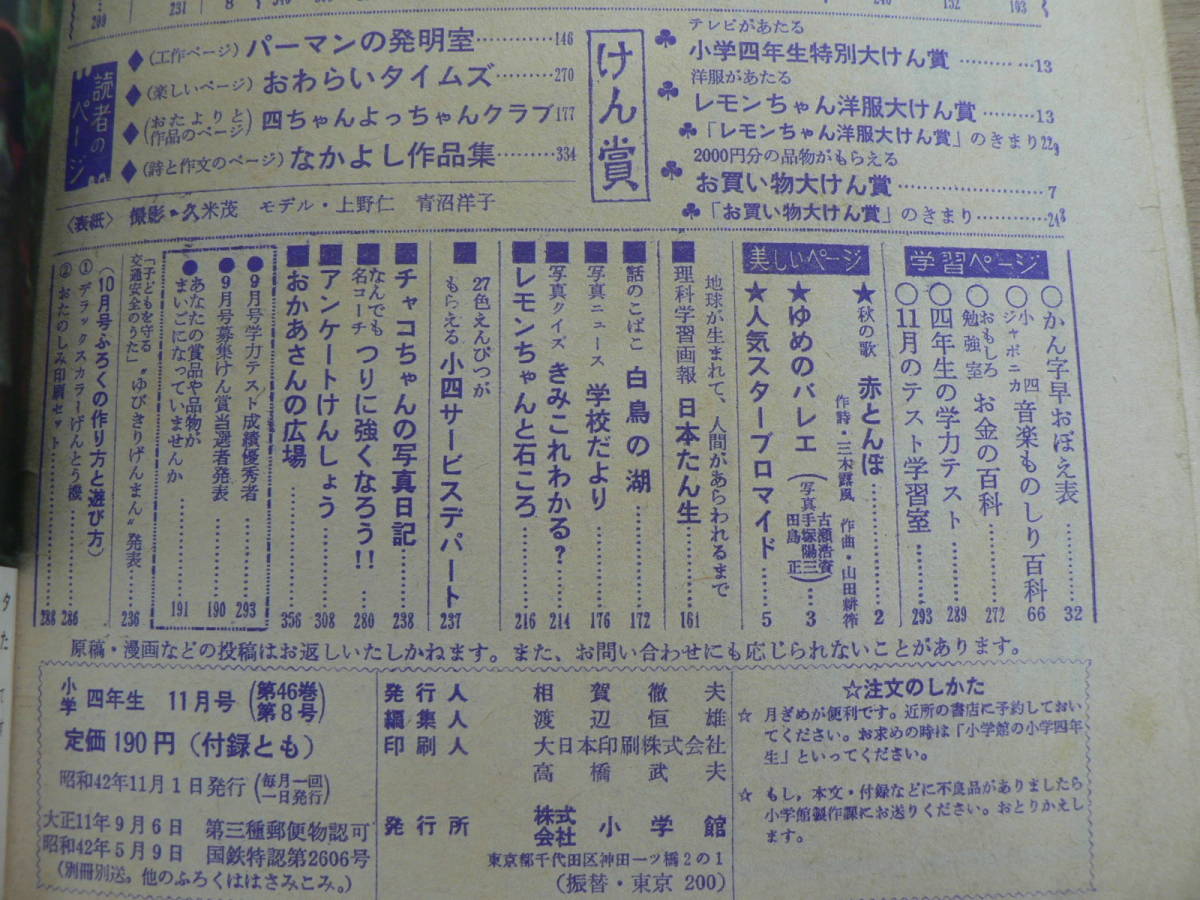 読者のページ
◆(工作ページ) パーマンの発明室…………146
◆(楽しいページ) おわらいタイムズ………270
◆(おたよりと作品のページ) 四ちゃんよっちゃんクラブ177
◆(詩と作文のページ) なかよし作品集………334
けん賞
テレビがあたる
♣小学四年生特別大けん賞…………13
洋服があたる
♣レモンちゃん洋服大けん賞…………13
♣「レモンちゃん洋服大けん賞」のきまり229
2000円分の品物がもらえる
♣お買い物大けん賞…………………7
♣「お買い物大けん賞」のきまり…………248
〈表紙〉 撮影・久米茂 モデル・上野仁 青沼洋子
学習ページ
○かん字早おぼえ表………32
○小四ジャポニカ 音楽ものしり百科 66
○おもしろ勉強室 お金の百科………272
○四年生の学力テスト………289
○11月のテスト学習室………293
美しいページ
★秋の歌 赤とんぼ………2
作詩・三木露風 作曲・山田耕筰
★ゆめのバレエ(写真 古瀬浩資 手塚陽三 田島正)…3
★人気スターブロマイド……5
地球が生まれて、人間があらわれるまで
■理科学習画報 日本たん生………161
■話のこばこ 白鳥の湖………172
■写真ニュース 学校だより………176
■写真クイズ きみこれわかる?……214
■レモンちゃんと石ころ………216
■27色えんぴつがもらえる 小四サービスデパート 237
■チャコちゃんの写真日記………238
■なんでも名コーチ つりに強くなろう!!……280
■アンケートけんしょう………308
■おかあさんの広場………356
●9月号学力テスト成績優秀者………293
●9月号募集けん賞当選者発表………190
●あなたの賞品や品物がまいごになっていませんか………191
「子どもを守る交通安全のうた」“ゆびきりげんまん”発表……236
(10月号ふろくの作り方と遊び方)
①デラックスカラーげんとう機………286
②おたのしみ印刷セット………288
原稿・漫画などの投稿はお返しいたしかねます。また、お問い合わせにも応じられないことがあります。
小学四年生 11月号(第46巻第8号)
定価190円(付録とも)
昭和42年11月1日発行(毎月一回一日発行)
大正11年9月6日 第三種郵便物認可
昭和42年5月9日 国鉄特認第2606号
(別冊別送。他のふろくははさみこみ。)
発行人 相賀徹夫
編集人 渡辺恒雄
印刷人 大日本印刷株式会社
高橋武夫
発行所 株式会社 小学館
東京都千代田区神田一ツ橋2の1
(振替・東京 200)
☆注文のしかた
☆ 月ぎめが便利です。近所の書店に予約しておい
てください。お求めの時は「小学館の小学四年
生」といってください。
☆ もし,本文・付録などに不良品がありましたら
小学館製作課にお送りください。おとりかえし
ます。